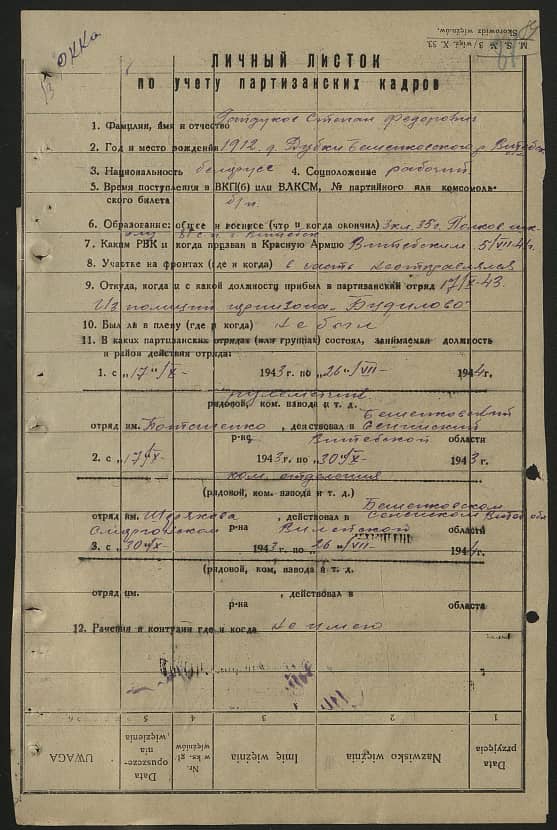 M. S. № 3/więź. X. 53.
Skorowidz więźniów.
ОККа
ЛИЧНЫЙ ЛИСТОК
по учету партизанских кадров
1. Фамилия, имя и отчество Степан Федорович
2. Год и место рождения 1912 д. Дубки Бешенковского р. Витебск
3. Национальность белорусс 4. Соцположение рабочий
5. Время поступления в ВКП(б) или ВЛКСМ, № партийного или комсомоль-
ского билета б/п
6. Образование: общее и военное (что и когда окончил) 3 кл. 35г. Полков шко-
7. Каким РВК и когда призван в Красную Армию Витебским 5/VII-41г.
8. Участие на фронтах (где и когда) в часть не отправлялся
9. Откуда, когда и с какой должности прибыл в партизанский отряд 17/X-43
Из полиции гарнизона "Будилово"
10. Был ли в плену (где и когда) не был
11. В каких партизанских отрядах (или группах) состоял, занимаемая должность
и район действия отряда:
1. с „17"/X- 1943 г. по „26"/VII- 1944г.
пулеметчик
рядовой, ком. взвода и т. д.
Бешенковский
отряд им. , действовал в Сенненский
р-не Витебской области
2. с „17"/X- 1943 г. по „30"/X- 1943 г.
ком. отделения
(рядовой, ком. взвода и т. д.)
Бешенковском
отряд им. , действовал в Сенненском Витеб. обл
Сморгонском р-на Вилейской области
3. с „30"/X- 1943 г. по „26"/VII- 1944г.
(рядовой, ком, взвода и т. д.
отряд им. , действовал в
р-на области
12. Ранения и контузии где и когда не имею
6 5 4 3 2 1
UWAGA
Data opuszcze- nia więzienia
Nr. w ks. gł. więźniów
Imię więźnia
Nazwisko więźnia
Data przyjęcia